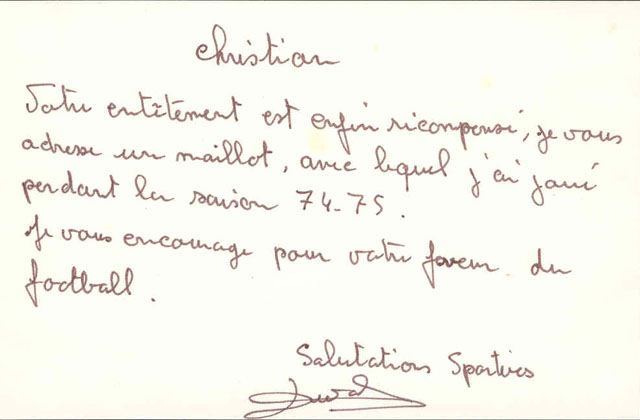 Christian
Votre entêtement est enfin récompensé, je vous
adresse un maillot, avec lequel j'ai joué
pendant la saison 74-75.
Je vous encourage pour votre faveur du
football.
Salutations Sportives